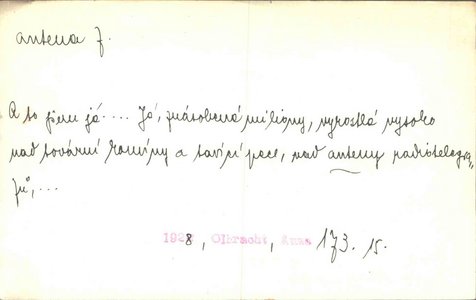 antena f.
A to jsem já.... Já, znásobená miliony, vyrostlá vysoko
nad tovární komíny a tavicí pece, nad anteny radiotelegra
fů",...
1928, Olbracht, Anna, 173. 15.